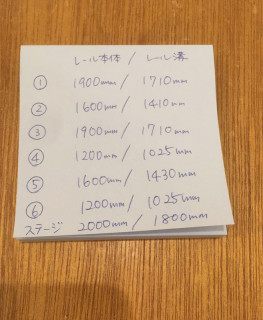 レール本体 / レール溝
① 1900mm / 1710mm
② 1600mm / 1410mm
③ 1900mm / 1710mm
④ 1200mm / 1025mm
⑤ 1600mm / 1430mm
⑥ 1200mm / 1025mm
ステージ 2000mm / 1800mm